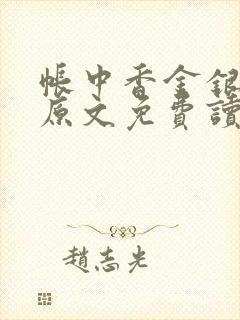 帳中香金銀
原文免費讀
趙志光